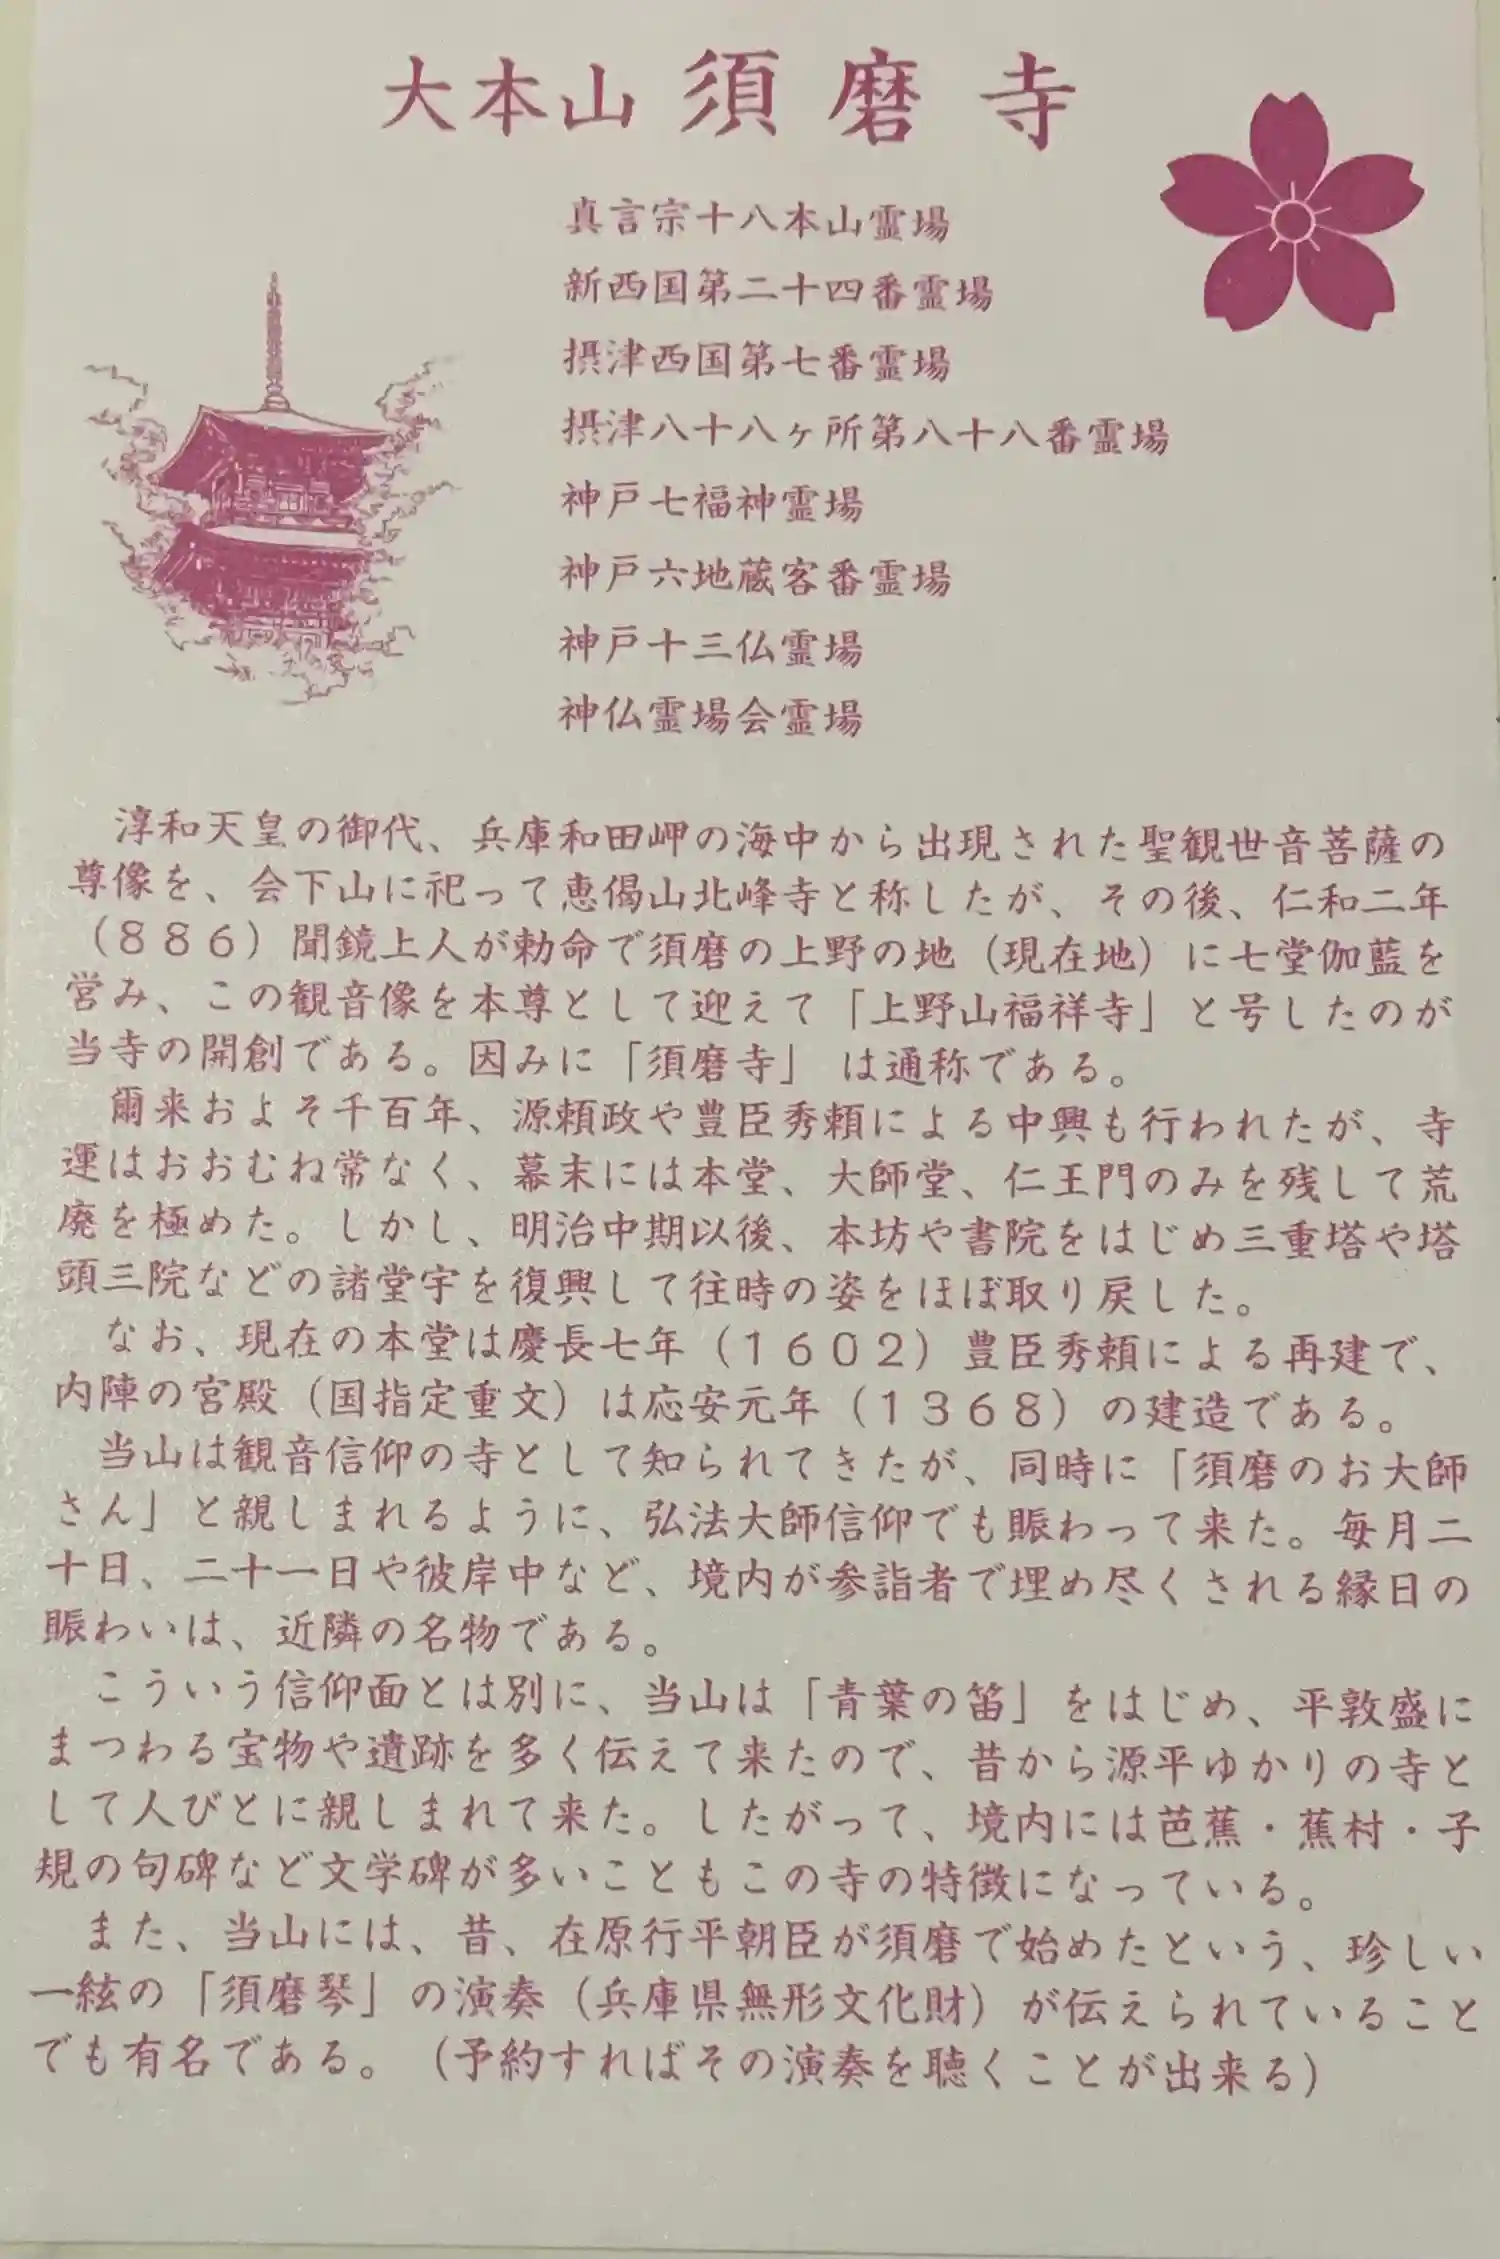 大本山 須磨寺
真言宗十八本山霊場
新西国第二十四番霊場
摂津西国第七番霊場
摂津八十八ヶ所第八十八番霊場
神戸七福神霊場
神戸六地蔵客番霊場
神戸十三仏霊場
神仏霊場会霊場
淳和天皇の御代、兵庫和田岬の海中から出現された聖観世音菩薩の
尊像を、会下山に祀って恵偈山北峰寺と称したが、その後、仁和二年
（８８６）聞鏡上人が勅命で須磨の上野の地（現在地）に七堂伽藍を
営み、この観音像を本尊として迎えて「上野山福祥寺」と号したのが
当寺の開創である。因みに「須磨寺」 は通称である。
爾来およそ千百年、源頼政や豊臣秀頼による中興も行われたが、寺
運はおおむね常なく、幕末には本堂、大師堂、仁王門のみを残して荒
廃を極めた。しかし、明治中期以後、本坊や書院をはじめ三重塔や塔
頭三院などの諸堂宇を復興して往時の姿をほぼ取り戻した。
なお、現在の本堂は慶長七年（１６０２）豊臣秀頼による再建で、
内陣の宮殿（国指定重文）は応安元年（１３６８）の建造である。
当山は観音信仰の寺として知られてきたが、同時に「須磨のお大師
さん」と親しまれるように、弘法大師信仰でも賑わって来た。毎月二
十日、二十一日や彼岸中など、境内が参詣者で埋め尽くされる縁日の
賑わいは、近隣の名物である。
こういう信仰面とは別に、当山は「青葉の笛」をはじめ、平敦盛に
まつわる宝物や遺跡を多く伝えて来たので、昔から源平ゆかりの寺と
して人びとに親しまれて来た。したがって、境内には芭蕉・蕉村・子
規の句碑など文学碑が多いこともこの寺の特徴になっている。
また、当山には、昔、在原行平朝臣が須磨で始めたという、珍しい
一絃の「須磨琴」の演奏（兵庫県無形文化財）が伝えられていること
でも有名である。（予約すればその演奏を聴くことが出来る）